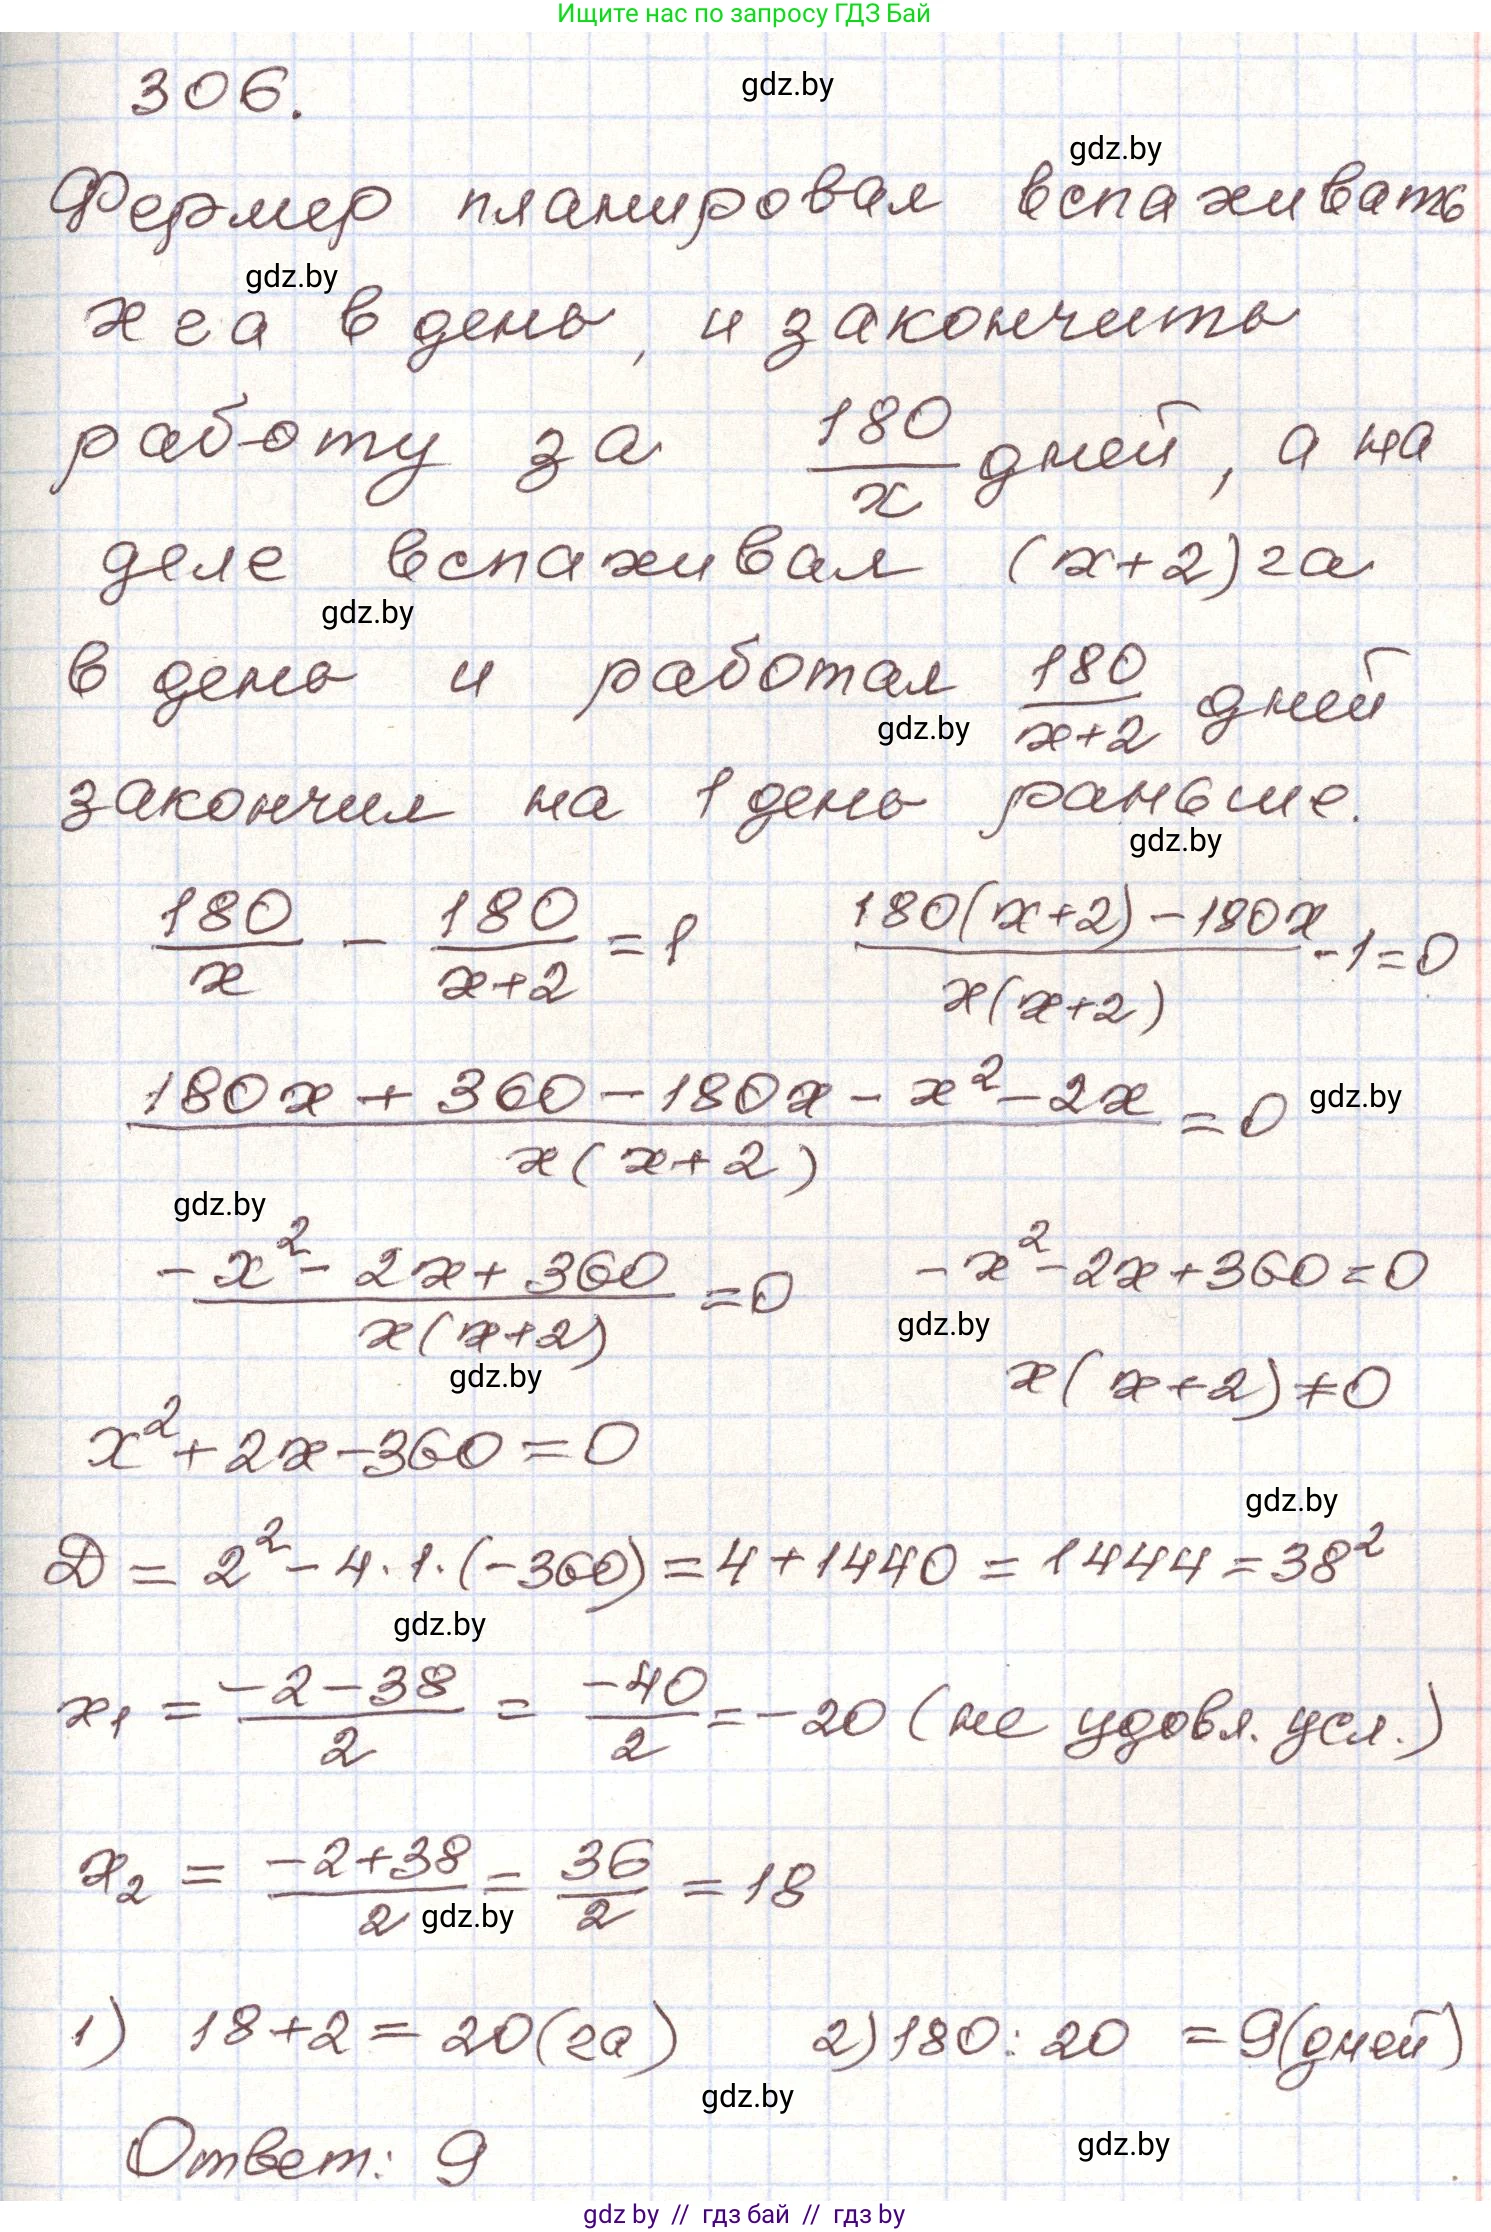 Ищите нас по запросу ГДЗ Бай
306.
gdz.by
gdz.by
Фермер планировал вспаживать
gdz.by
x га в день, и закончить
работу за 180/x дней, а на
деле вспаживал (x+2) га
gdz.by
в день и работал 180/(x+2) дней
gdz.by
закончил на 1 день раньше.
gdz.by
180/x - 180/(x+2) = 1    (180(x+2) - 180x)/(x(x+2)) - 1 = 0
(180x + 360 - 180x - x² - 2x)/(x(x+2)) = 0
gdz.by
gdz.by
(-x² - 2x + 360)/(x(x+2)) = 0    -x² - 2x + 360 = 0
gdz.by
gdz.by
x(x+2) ≠ 0
x² + 2x - 360 = 0
gdz.by
D = 2² - 4·1·(-360) = 4 + 1440 = 1444 = 38²
gdz.by
x₁ = (-2-38)/2 = -40/2 = -20 (не удовл. усл.)
x₂ = (-2+38)/2 = 36/2 = 18
gdz.by
1) 18+2 = 20 (га)    2) 180 : 20 = 9 (дней)
gdz.by
gdz.by
Ответ: 9
gdz.by // гдз бай // гдз by